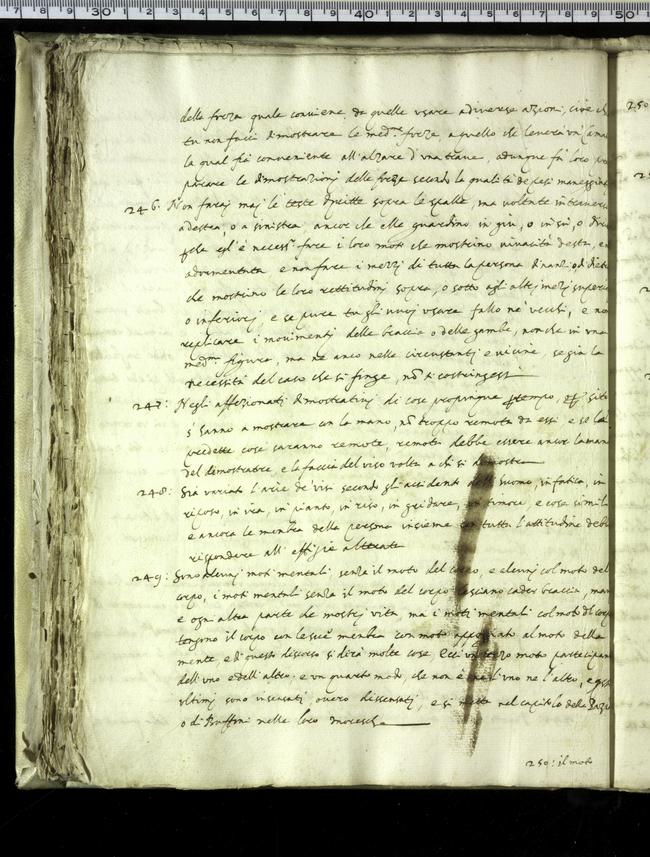 delle forze quale conviene da quelle usare a diverse azioni, cive ch
tu non facci dimostrare le med.me forze a quello che leverà un
la qual fia conveniente all'alzare d'una trave, adunque fà loro
parare le dimostrazioni delle forze secondo la qualità de pesi maneggia
246. Non faraj maj le teste dritte sopra le spalle, ma voltate in traverso
a destra, o a sinistra ancor che elle guardino in giù, o in sù, o diri
perche egl'è necess.o fare i loro moti che mostrino vivacità desta, e n
adormentata e non fare i mezzj di tutta la persona dinanzi, o di dietro
che mostrino le loro rettitudinj sopra, o sotto agli altrj mezzj superio
o inferiorj, e se pure tu gli vuoj usare fallo ne' vecchi, e non
replicare i movimenti delle braccia o delle gambe, non che in una
med.ma figura, ma ne anco nelle circunstanti e vicine, se già la
necessità del caso che si finge, nõ ti costringessi
247: Negli affezionati dimostrativj di cose propinque p tempo, o p sito
s'hanno a mostrare con la mano, nõ troppo remota da essi e se le
predette cose saranno remote, remota debbe essere ancor la man
del demostratore, e la faccia del viso volta a chi si demostra
248: Sia variato l'arie de' visi secondo gli accidenti dell'huomo, in fatica, in
riposo, in ira, in pianto, in riso, in gridare, in timore, e cose simili
e ancora le membra della persona insieme con tutta l'attitudine debe
rispondere all'effigie alterate
249: Sono alcunj moti mentali senza il moto del corpo, e alcunj col moto del
corpo, i moti mentali senza il moto del corpo lasciano cader braccia, man
e ogni altra parte che mostrj vita, ma i moti mentali col moto del corpo
tengono il corpo con le sue membra con moto appropriato al moto della
mente, e di questo discorso si dirà molte cose, Ecci un terzo moto participan
dell'uno e dell'altro: e un quarto modo, che non è ne l'uno ne l'altro, e qsti
ultimj sono insensati, overo dissensatj, e si mette nel capitolo della Pazzi
o di Buffoni nelle loro moresche
250: il moto
250